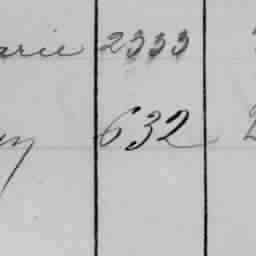 arie 2333
632